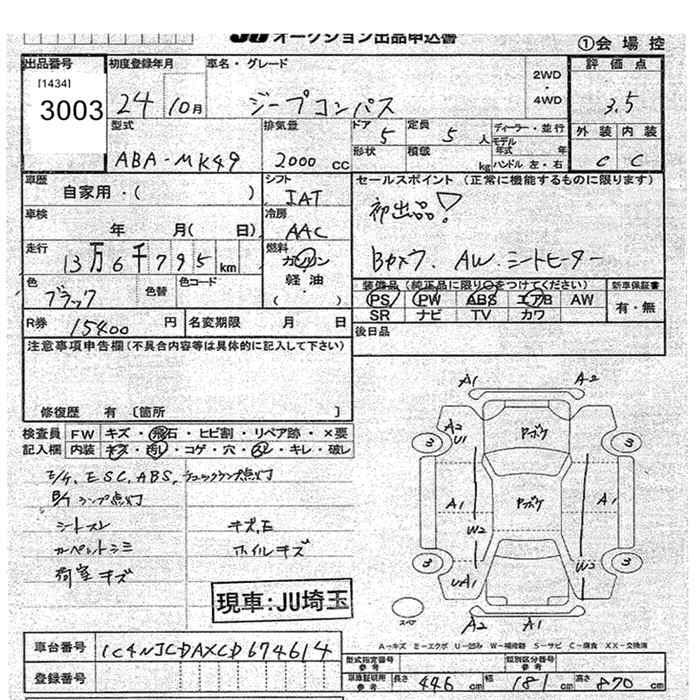 JU オークション出品申込書
①会場控
出品番号 初度登録年月 車名・グレード 評価点
[1434]
3003
24 10月 ジープコンパス 2WD・4WD 3.5
型式 排気量 ドア 定員 ディーラー・並行 外装 内装
ABA-MK49 2000 CC 5 5人 モデル年式 年 C C
形状 積載 kg ハンドル 左・右
車歴 シフト セールスポイント (正常に機能するものに限ります)
自家用・( ) IAT 初出品!
車検 冷房
年 月( 日) AAC
走行 燃料 Bカメラ. AW. シートヒーター
13万6千795km ガソリン
軽・油
( )
色 色替 色コード 装備品 (純正品に限り○をつけてください) 新車保証書
ブラック PS PW ABS エアB AW 有・無
SR ナビ TV カワ
R券 15400 円 名変期限 月 日 後日品
注意事項申告欄(不具合内容等は具体的に記入して下さい)
修復歴 有 〔箇所 〕
検査員 FW キズ・飛石・ヒビ割・リペア跡・×要
記入欄 内装 キズ・汚レ・コゲ・穴・スレ・キレ・破レ
E/G, ESC, ABS, チェックランプ点灯
B/K ランプ点灯
シートスレ キズ, E
カーペットシミ ホイルキズ
荷室キズ
現車:JU埼玉
A1 A2
A2
U1
3 ヤボケ 3
A1 ヤボケ A1
W2
3 W2 3
UA1
スペア A2 A1
A-キズ E-エクボ U-凹み W-補修跡 S-サビ C-腐食 XX-交換済
車台番号 1C4NJCDAXCD674614
型式指定番号 参考 類別区分番号 参考
登録番号 車庫証明用 参考 長さ 446 cm 幅 181 cm 高さ 870 cm